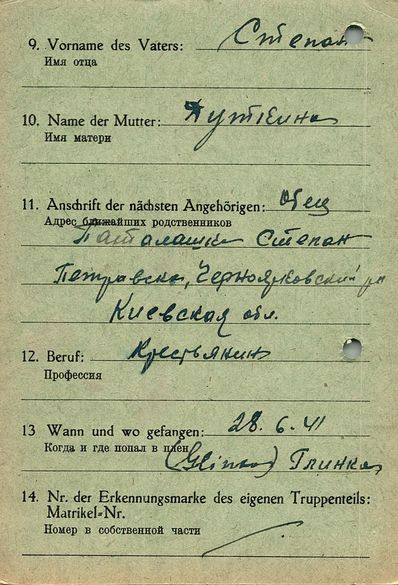 9. Vorname des Vaters: Степан
Имя отца
10. Name der Mutter: Путкина
Имя матери
11. Anschrift der nächsten Angehörigen: Отец
Адрес ближайших родственников
Паталашка Степан
Петравска, р-н
Киевская обл.
12. Beruf: Крестьянин
Профессия
13 Wann und wo gefangen: 28. 6. 41
Когда и где попал в плен (Glinka) Глинка
14. Nr. der Erkennungsmarke des eigenen Truppenteils:
Matrikel-Nr.
Номер в собственной части